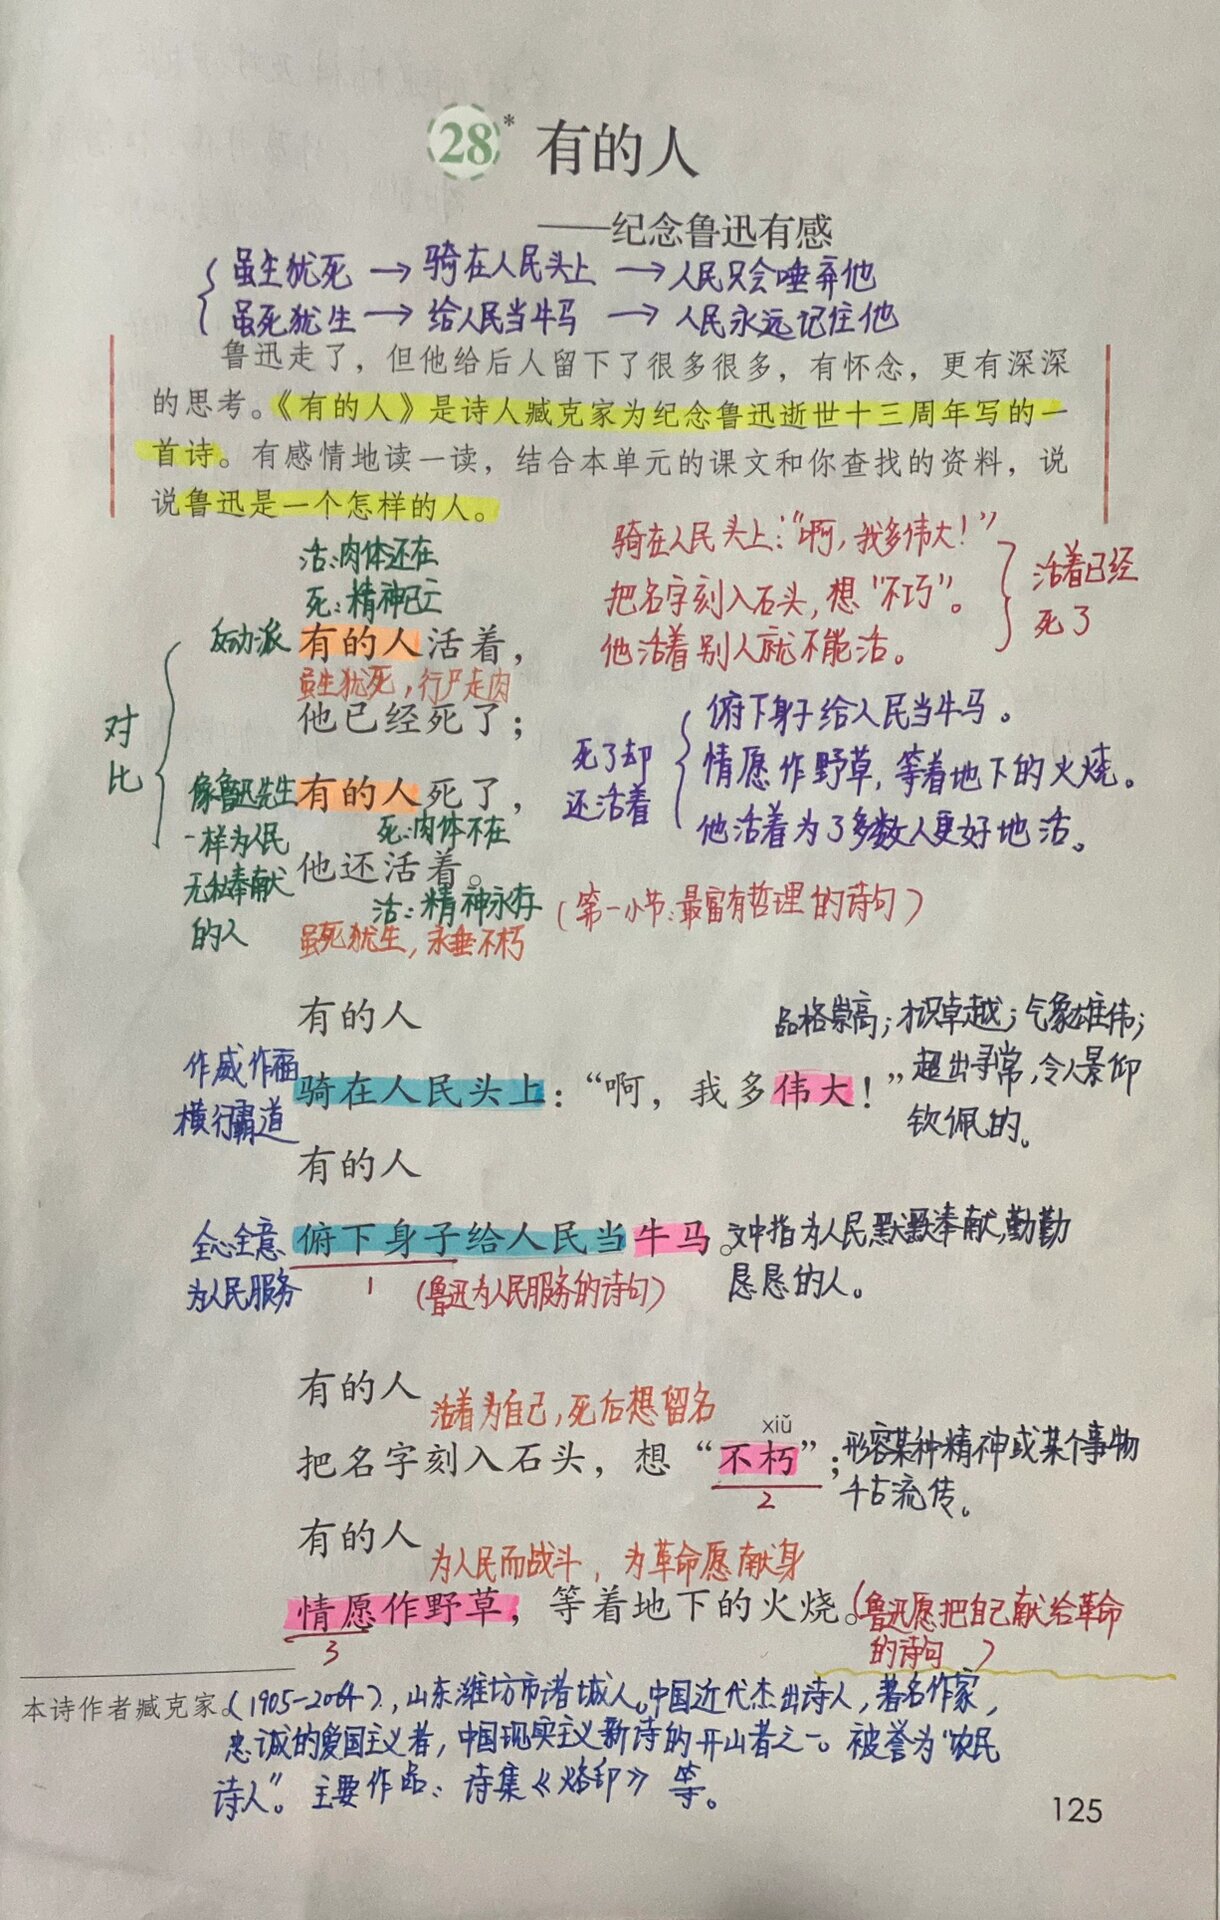 28* 有的人
——纪念鲁迅有感
虽生犹死→骑在人民头上→人民只会唾弃他
虽死犹生→给人民当牛马→人民永远记住他
鲁迅走了，但他给后人留下了很多很多，有怀念，更有深深
的思考。《有的人》是诗人臧克家为纪念鲁迅逝世十三周年写的一
首诗。有感情地读一读，结合本单元的课文和你查找的资料，说
说鲁迅是一个怎样的人。
活：肉体还在
死：精神已亡
骑在人民头上：“啊，我多伟大！”
把名字刻入石头，想“不巧”。
他活着别人就不能活。
活着已经
死了
对比
反动派
有的人活着，
虽生犹死，行尸走肉
他已经死了；
死了却
还活着
俯下身子给人民当牛马。
情愿作野草，等着地下的火烧。
他活着为了多数人更好地活。
像鲁迅先生
一样为人民
无私奉献
的人
有的人死了，
死：肉体不在
他还活着。
活：精神永存
（第一小节：最富有哲理的诗句）
虽死犹生，永垂不朽
有的人
品格崇高；才识卓越；气象雄伟；
超出寻常，令人景仰
钦佩的。
作威作福
横行霸道
骑在人民头上：“啊，我多伟大！”
有的人
全心全意
为人民服务
俯下身子给人民当牛马。
文中指为人民默默奉献，勤勤
恳恳的人。
1
（鲁迅为人民服务的诗句）
有的人
活着为自己，死后想留名
xiǔ
把名字刻入石头，想“不朽”；
形容某种精神或某个事物
千古流传。
2
有的人
为人民而战斗，为革命愿献身
情愿作野草，等着地下的火烧。
（鲁迅愿把自己献给革命
的诗句）
3
本诗作者臧克家（1905-2004），山东潍坊市诸城人。中国近代杰出诗人，著名作家，
忠诚的爱国主义者，中国现实主义新诗的开山者之一。被誉为“农民
诗人”。主要作品：诗集《烙印》等。
125